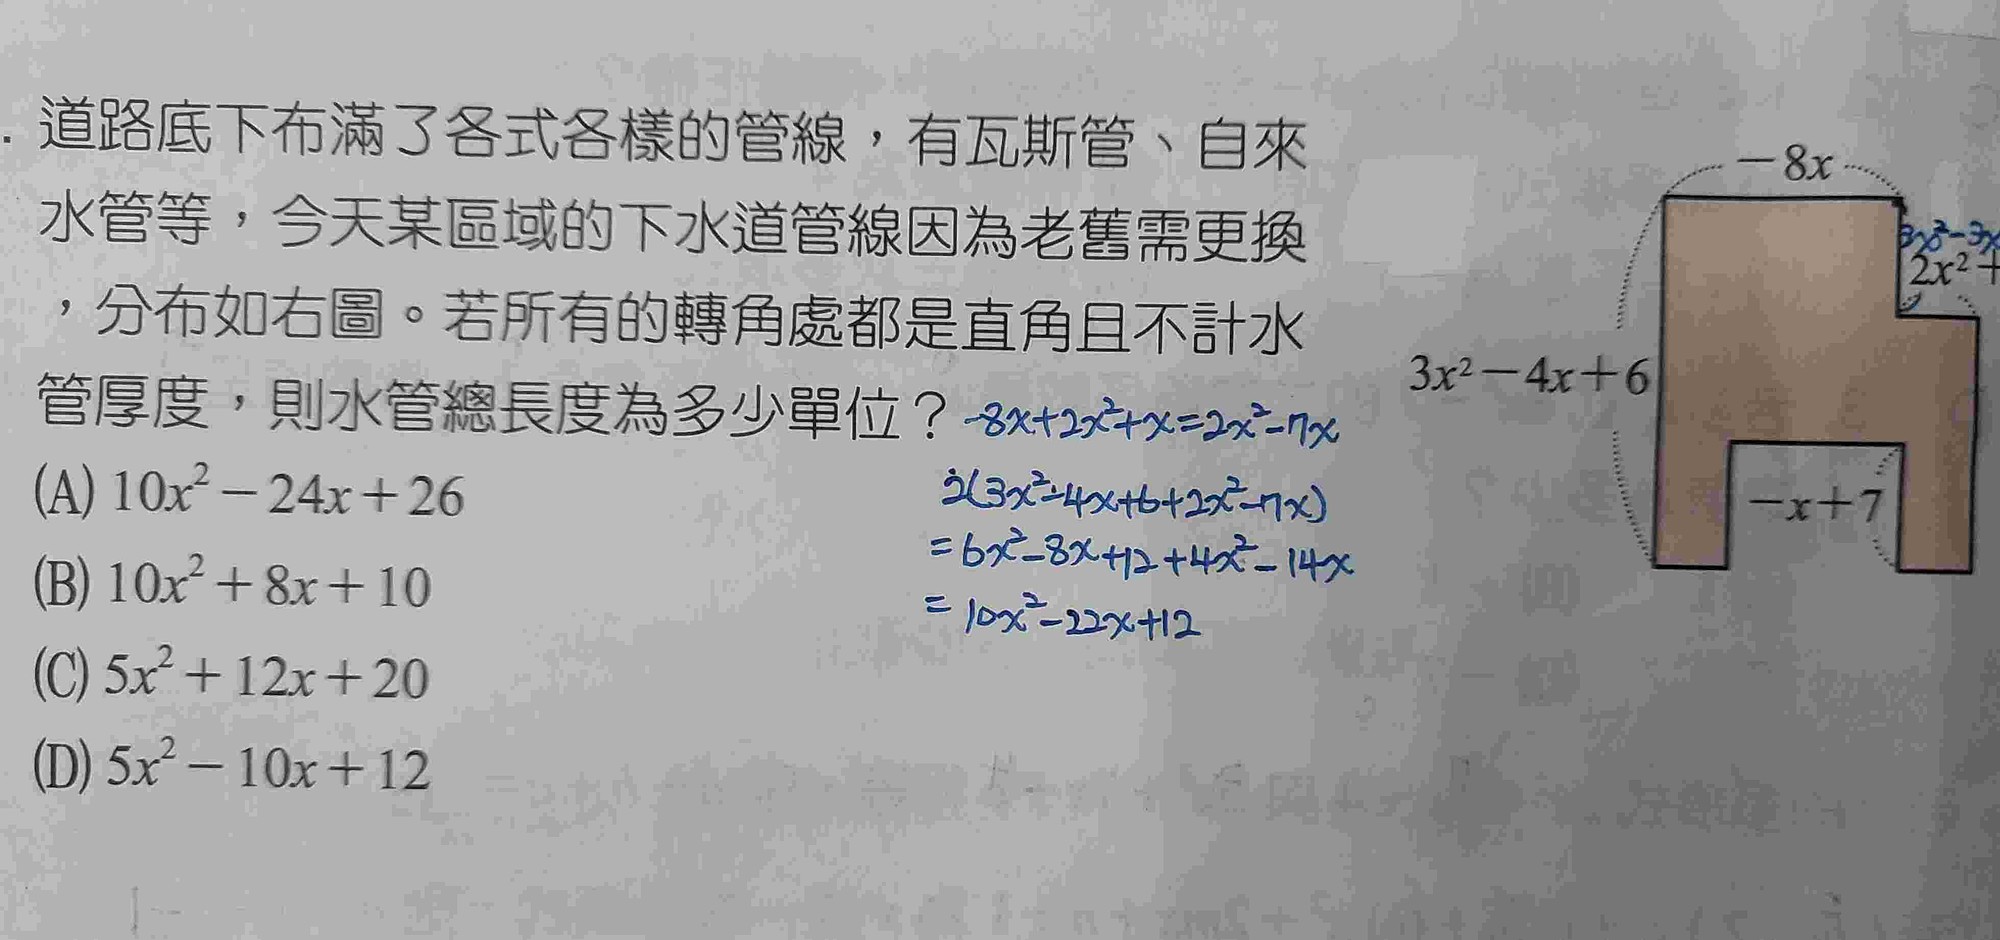 . 道路底下布滿了各式各樣的管線，有瓦斯管、自來
水管等，今天某區域的下水道管線因為老舊需更換
，分布如右圖。若所有的轉角處都是直角且不計水
管厚度，則水管總長度為多少單位？
(A) 10x² − 24x + 26
(B) 10x² + 8x + 10
(C) 5x² + 12x + 20
(D) 5x² − 10x + 12
-8x+2x²+x=2x²-7x
2(3x²-4x+6+2x²-7x)
=6x²-8x+12+4x²-14x
=10x²-22x+12
−8x
2x²+
3x²−4x+6
−x+7